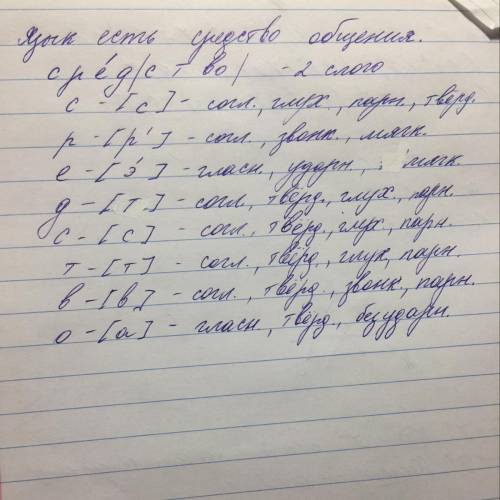 Язык есть средство общения.
сре́д/ство/ - 2 слога
с - [с] - согл., глух., парн., твёрд.
р - [р'] - согл., звонк., мягк.
е - [э́] - гласн., ударн., мягк.
д - [т] - согл., твёрд., глух., парн.
с - [с] - согл., твёрд., глух., парн.
т - [т] - согл., твёрд., глух., парн.
в - [в] - согл., твёрд., звонк., парн.
о - [а] - гласн., твёрд., безударн.